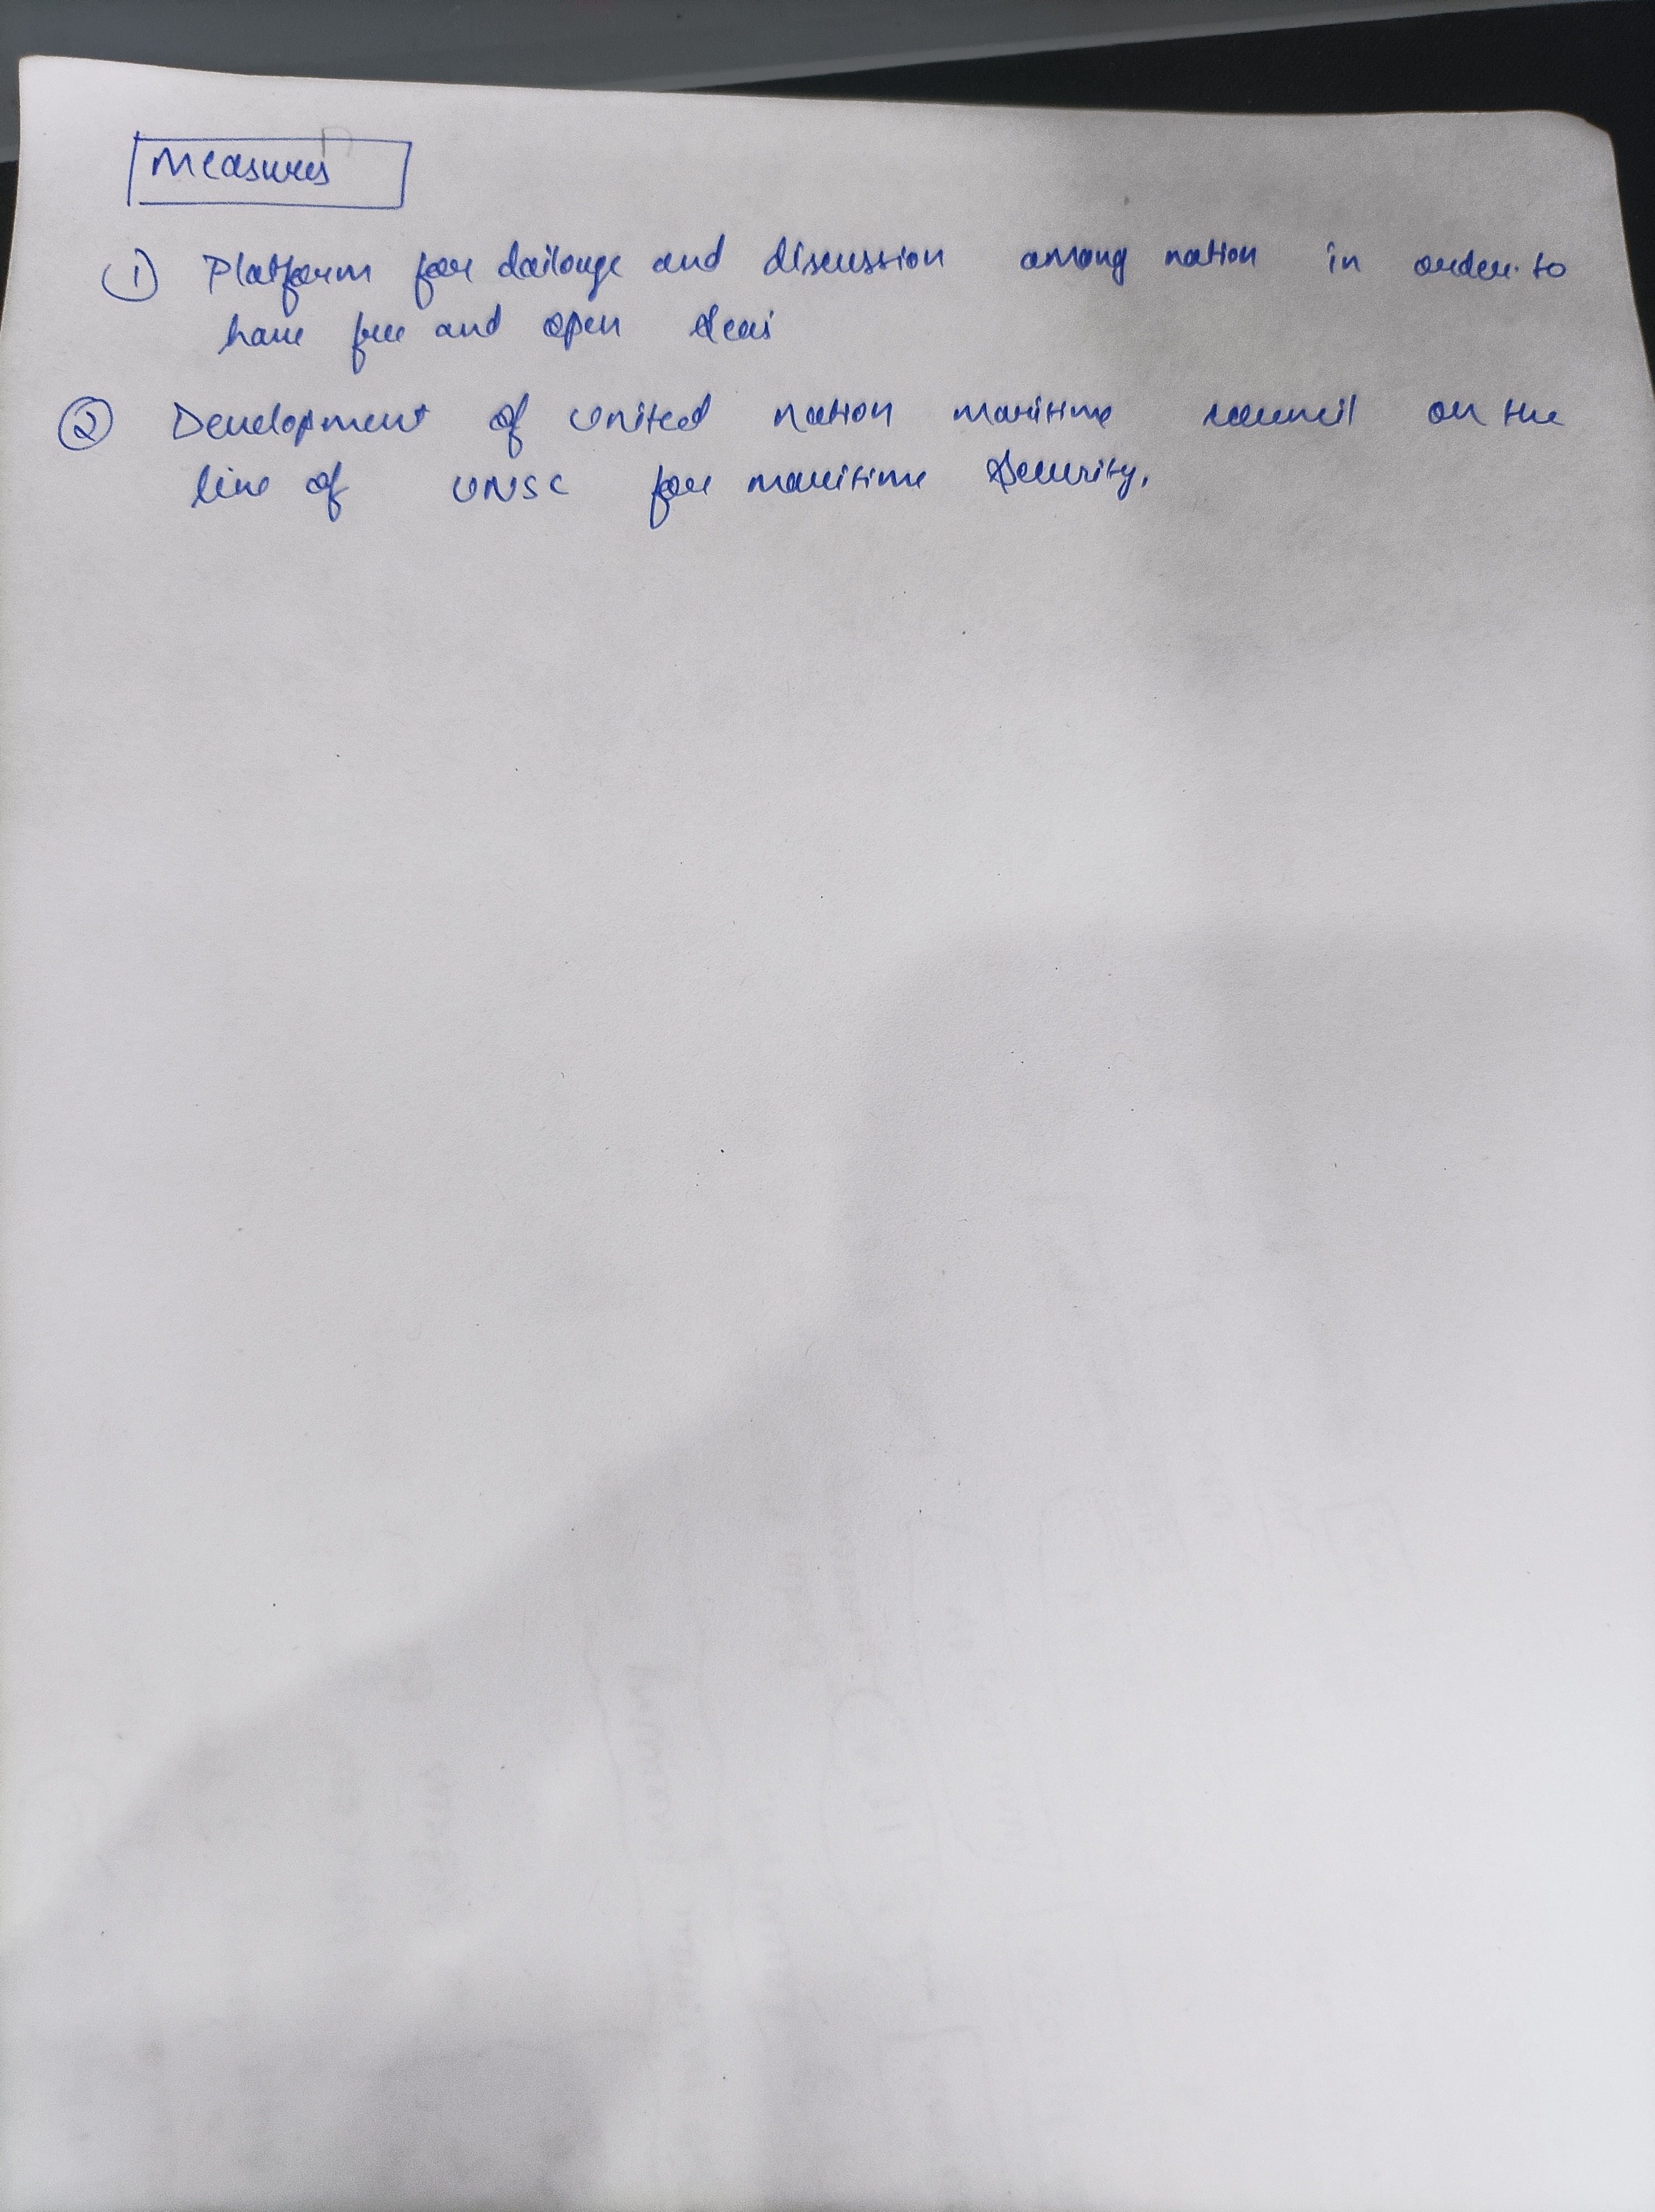 Measures
① Platform for dailouge and discussion among nation in order to
have free and open seas
② Development of United nation maritime council on the
line of UNSC for maritime security.